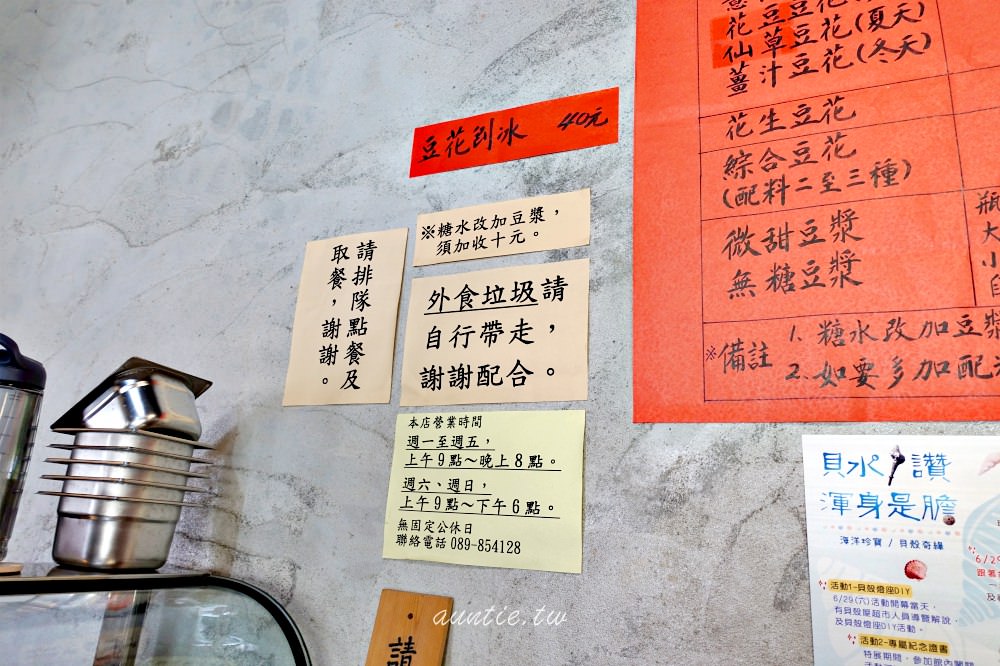 豆花剉冰 40元
※糖水改加豆漿，
須加收十元。
請排隊點餐及
取餐，謝謝。
外食垃圾請
自行帶走，
謝謝配合。
本店營業時間
週一至週五，
上午9點～晚上8點。
週六、週日，
上午9點～下午6點。
無固定公休日
聯絡電話 089-854128
請
花豆豆花
仙草豆花(夏天)
薑汁豆花(冬天)
花生豆花
綜合豆花
(配料二至三種)
微甜豆漿
無糖豆漿
瓶
大
小
自
※備註
1. 糖水改加豆漿
2. 如要多加配
貝水 讚
渾身是膽
海洋珍寶 / 貝殼奇緣
6/29
跟著
活動1-貝殼燈座DIY
6/29(六)活動開幕當天，
有貝殼屋超市人員導覽解說，
及貝殼燈座DIY活動。
活動2-專屬紀念證書
特展期間，參加館內闖關
auntie.tw